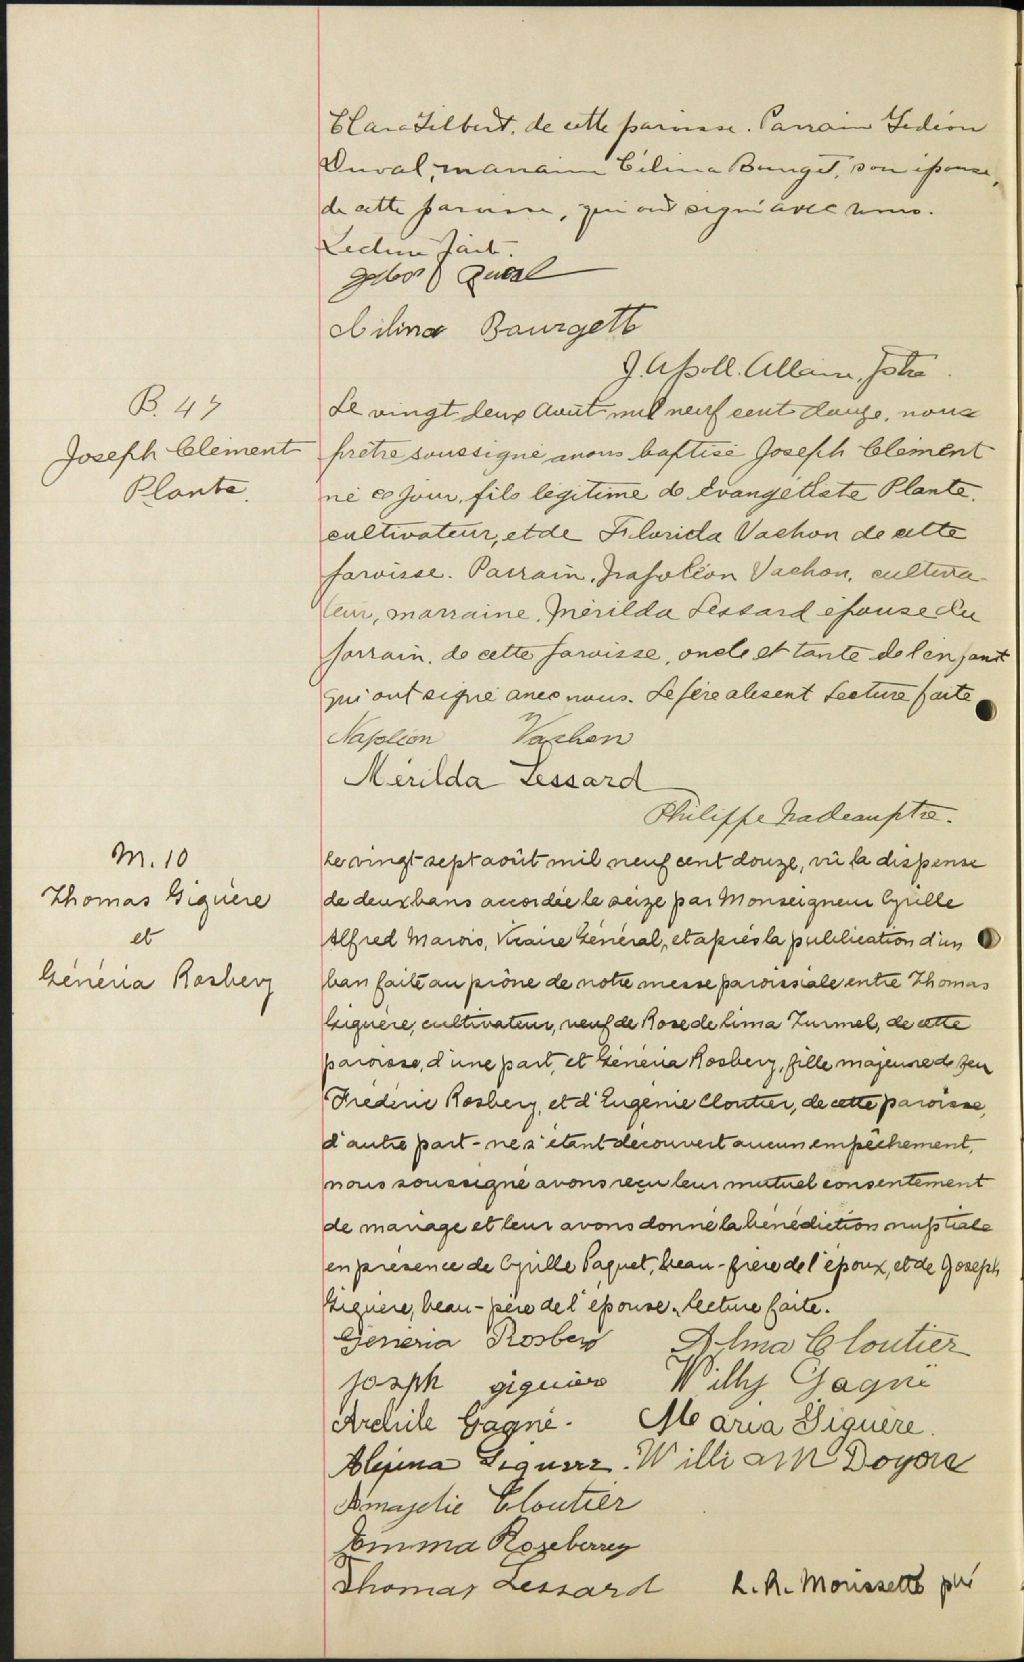 Clara Gilbert, de cette paroisse. Parrain Gédéon
Duval, marraine Célina Bourget, son épouse,
de cette paroisse, qui ont signé avec nous.
Lecture faite.
Duval
Célina Bourgett
J. Apoll. Allaire, ptre.
B. 47
Joseph Clément
Plante.
Le vingt deux Août mil neuf cent douze, nous
prêtre soussigné avons baptisé Joseph Clément
né ce jour, fils légitime de Evangéliste Plante,
cultivateur, et de Florida Vachon de cette
paroisse. Parrain, Napoléon Vachon, cultiva-
teur, marraine, Mérilda Lessard épouse du
parrain, de cette paroisse, oncle et tante de l'enfant
qui ont signé avec nous. Le père absent Lecture faite
Napoléon Vachon
Mérilda Lessard
Philippe Nadeau ptre.
M. 10
Thomas Giguère
et
Généria Rosbery
Le vingt-sept août mil neuf cent douze, vû la dispense
de deux bans accordée le seize par Monseigneur Cyrille
Alfred Marois, Vicaire Général, et après la publication d'un
ban faite au prône de notre messe paroissiale entre Thomas
Giguère, cultivateur, veuf de Rose de Lima Turmel, de cette
paroisse, d'une part, et Généria Rosbery, fille majeure de feu
Frédéric Rosbery, et d'Eugénie Cloutier, de cette paroisse,
d'autre part - ne s'étant découvert aucun empêchement,
nous soussigné avons reçu leur mutuel consentement
de mariage et leur avons donné la bénédiction nuptiale
en présence de Cyrille Paquet, beau-frère de l'époux, et de Joseph
Giguère, beau-père de l'épouse. Lecture faite.
Généria Rosbery Alma Cloutier
Joseph giguère Willy Gagné
Archile Gagné. Maria Giguère.
Giguere. William Doyon
Cloutier
Emma Roseberrey
Thomas Lessard L. R. Morissette ptre